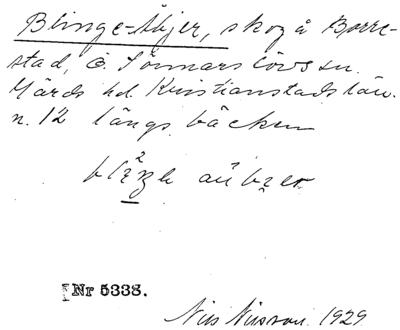 Blinge-Åbjer, skog å Borre-
stad, Ö. Sönnarslövs sn.
Gärds hd. Kristianstads län.
n. 12 längs bäcken
Nr 5338.
Nils Nilsson. 1929